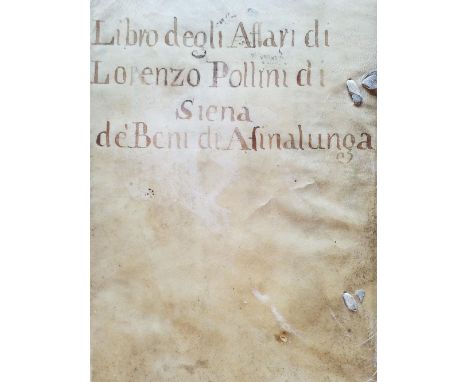 Libro degli Affari di
Lorenzo Pollini di
Siena
de' Beni di Asinalunga